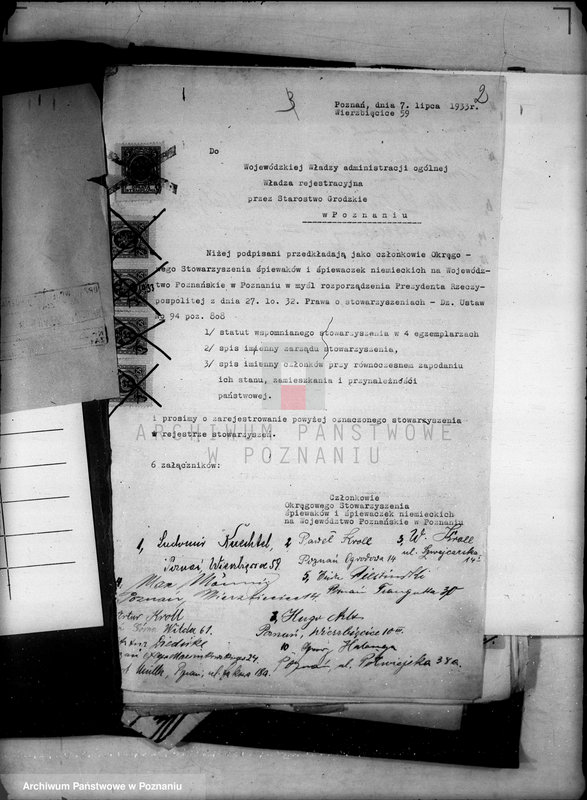 3
2
Poznań, dnia 7. lipca 1933r.
Wierzbięcice 59
Do
Wojewódzkiej Władzy administracji ogólnej
Władza rejestracyjna
przez Starostwo Grodzkie
w Poznaniu
Niżej podpisani przedkładają jako członkowie Okręgo -
wego Stowarzyszenia śpiewaków i śpiewaczek niemieckich na Wojewódz-
two Poznańskie w Poznaniu w myśl rozporządzenia Prezydenta Rzeczy-
pospolitej z dnia 27. 10. 32. Prawa o stowarzyszeniach - Dz. Ustaw
No 94 poz. 808
1/ statut wspomnianego stowarzyszenia w 4 egzemplarzach
2/ spis imienny zarządu stowarzyszenia,
3/ spis imienny członków przy równoczesnem zapodaniu
ich stanu, zamieszkania i przynależności
państwowej.
i prosimy o zarejestrowanie powyżej oznaczonego stowarzyszenia
w rejestrze stowarzyszeń.
ARCHIWUM PAŃSTWOWE
W POZNANIU
6 załączników:
Członkowie
Okręgowego Stowarzyszenia
śpiewaków i śpiewaczek niemieckich
na Województwo Poznańskie w Poznaniu
1, Ludomir Kuechtel, 2 Paweł Kroll 3, W. Kroll
Poznań Ogrodowa 14 ul.
Max 5,
Poznań, 14 Poznań 30
Artur Kroll Hugo
Górna Wilda 61. Poznań, Wierzbięcice 10
10.
24. Poznań, ul. Półwiejska 38a.
Poznań, ul.
Archiwum Państwowe w Poznaniu